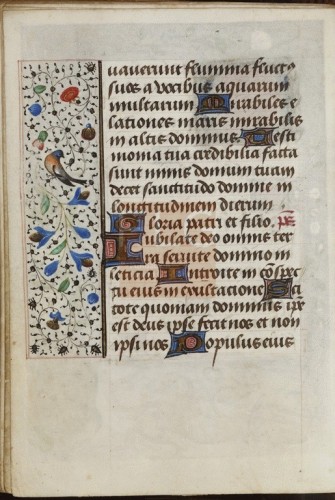 uauerunt flumina fluct9
suos a vocibus aquarum
multarum Mirabiles e
lationes maris mirabilis
in altis dominus Testi
monia tua credibilia facta
sunt nimis domum tuam
decet sanctitudo domine in
longitudinem dierum
Gloria patri et filio. ps
Iubilate deo omnis ter
ra seruite domino in
leticia Introite in cōspec
tu eius in exultacione Sci
tote quoniam dominus ipe
est deus ipse fecit nos et non
ipsi nos Populus eius